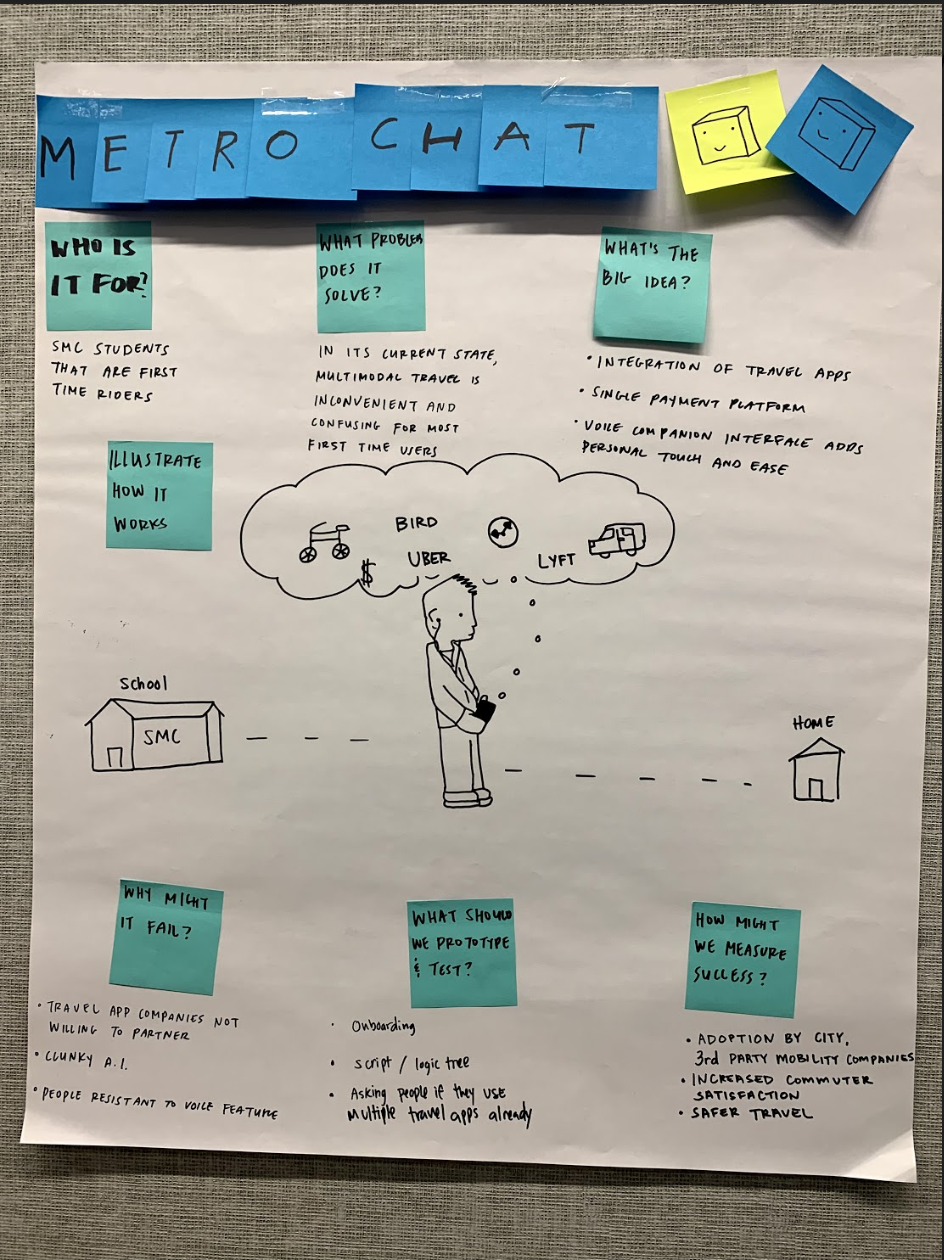 METRO CHAT
WHO IS
IT FOR?
SMC STUDENTS
THAT ARE FIRST
TIME RIDERS
WHAT PROBLEM
DOES IT
SOLVE?
IN ITS CURRENT STATE,
MULTIMODAL TRAVEL IS
INCONVENIENT AND
CONFUSING FOR MOST
FIRST TIME USERS
WHAT'S THE
BIG IDEA?
• INTEGRATION OF TRAVEL APPS
• SINGLE PAYMENT PLATFORM
• VOICE COMPANION INTERFACE ADDS
PERSONAL TOUCH AND EASE
ILLUSTRATE
HOW IT
WORKS
BIRD
$ UBER
LYFT
School
SMC
HOME
WHY MIGHT
IT FAIL?
• TRAVEL APP COMPANIES NOT
WILLING TO PARTNER
• CLUNKY A.I.
• PEOPLE RESISTANT TO VOICE FEATURE
WHAT SHOULD
WE PROTOTYPE
& TEST?
• Onboarding
• script / logic tree
• Asking people if they use
multiple travel apps already
HOW MIGHT
WE MEASURE
SUCCESS?
• ADOPTION BY CITY,
3rd PARTY MOBILITY COMPANIES
• INCREASED COMMUTER
SATISFACTION
• SAFER TRAVEL